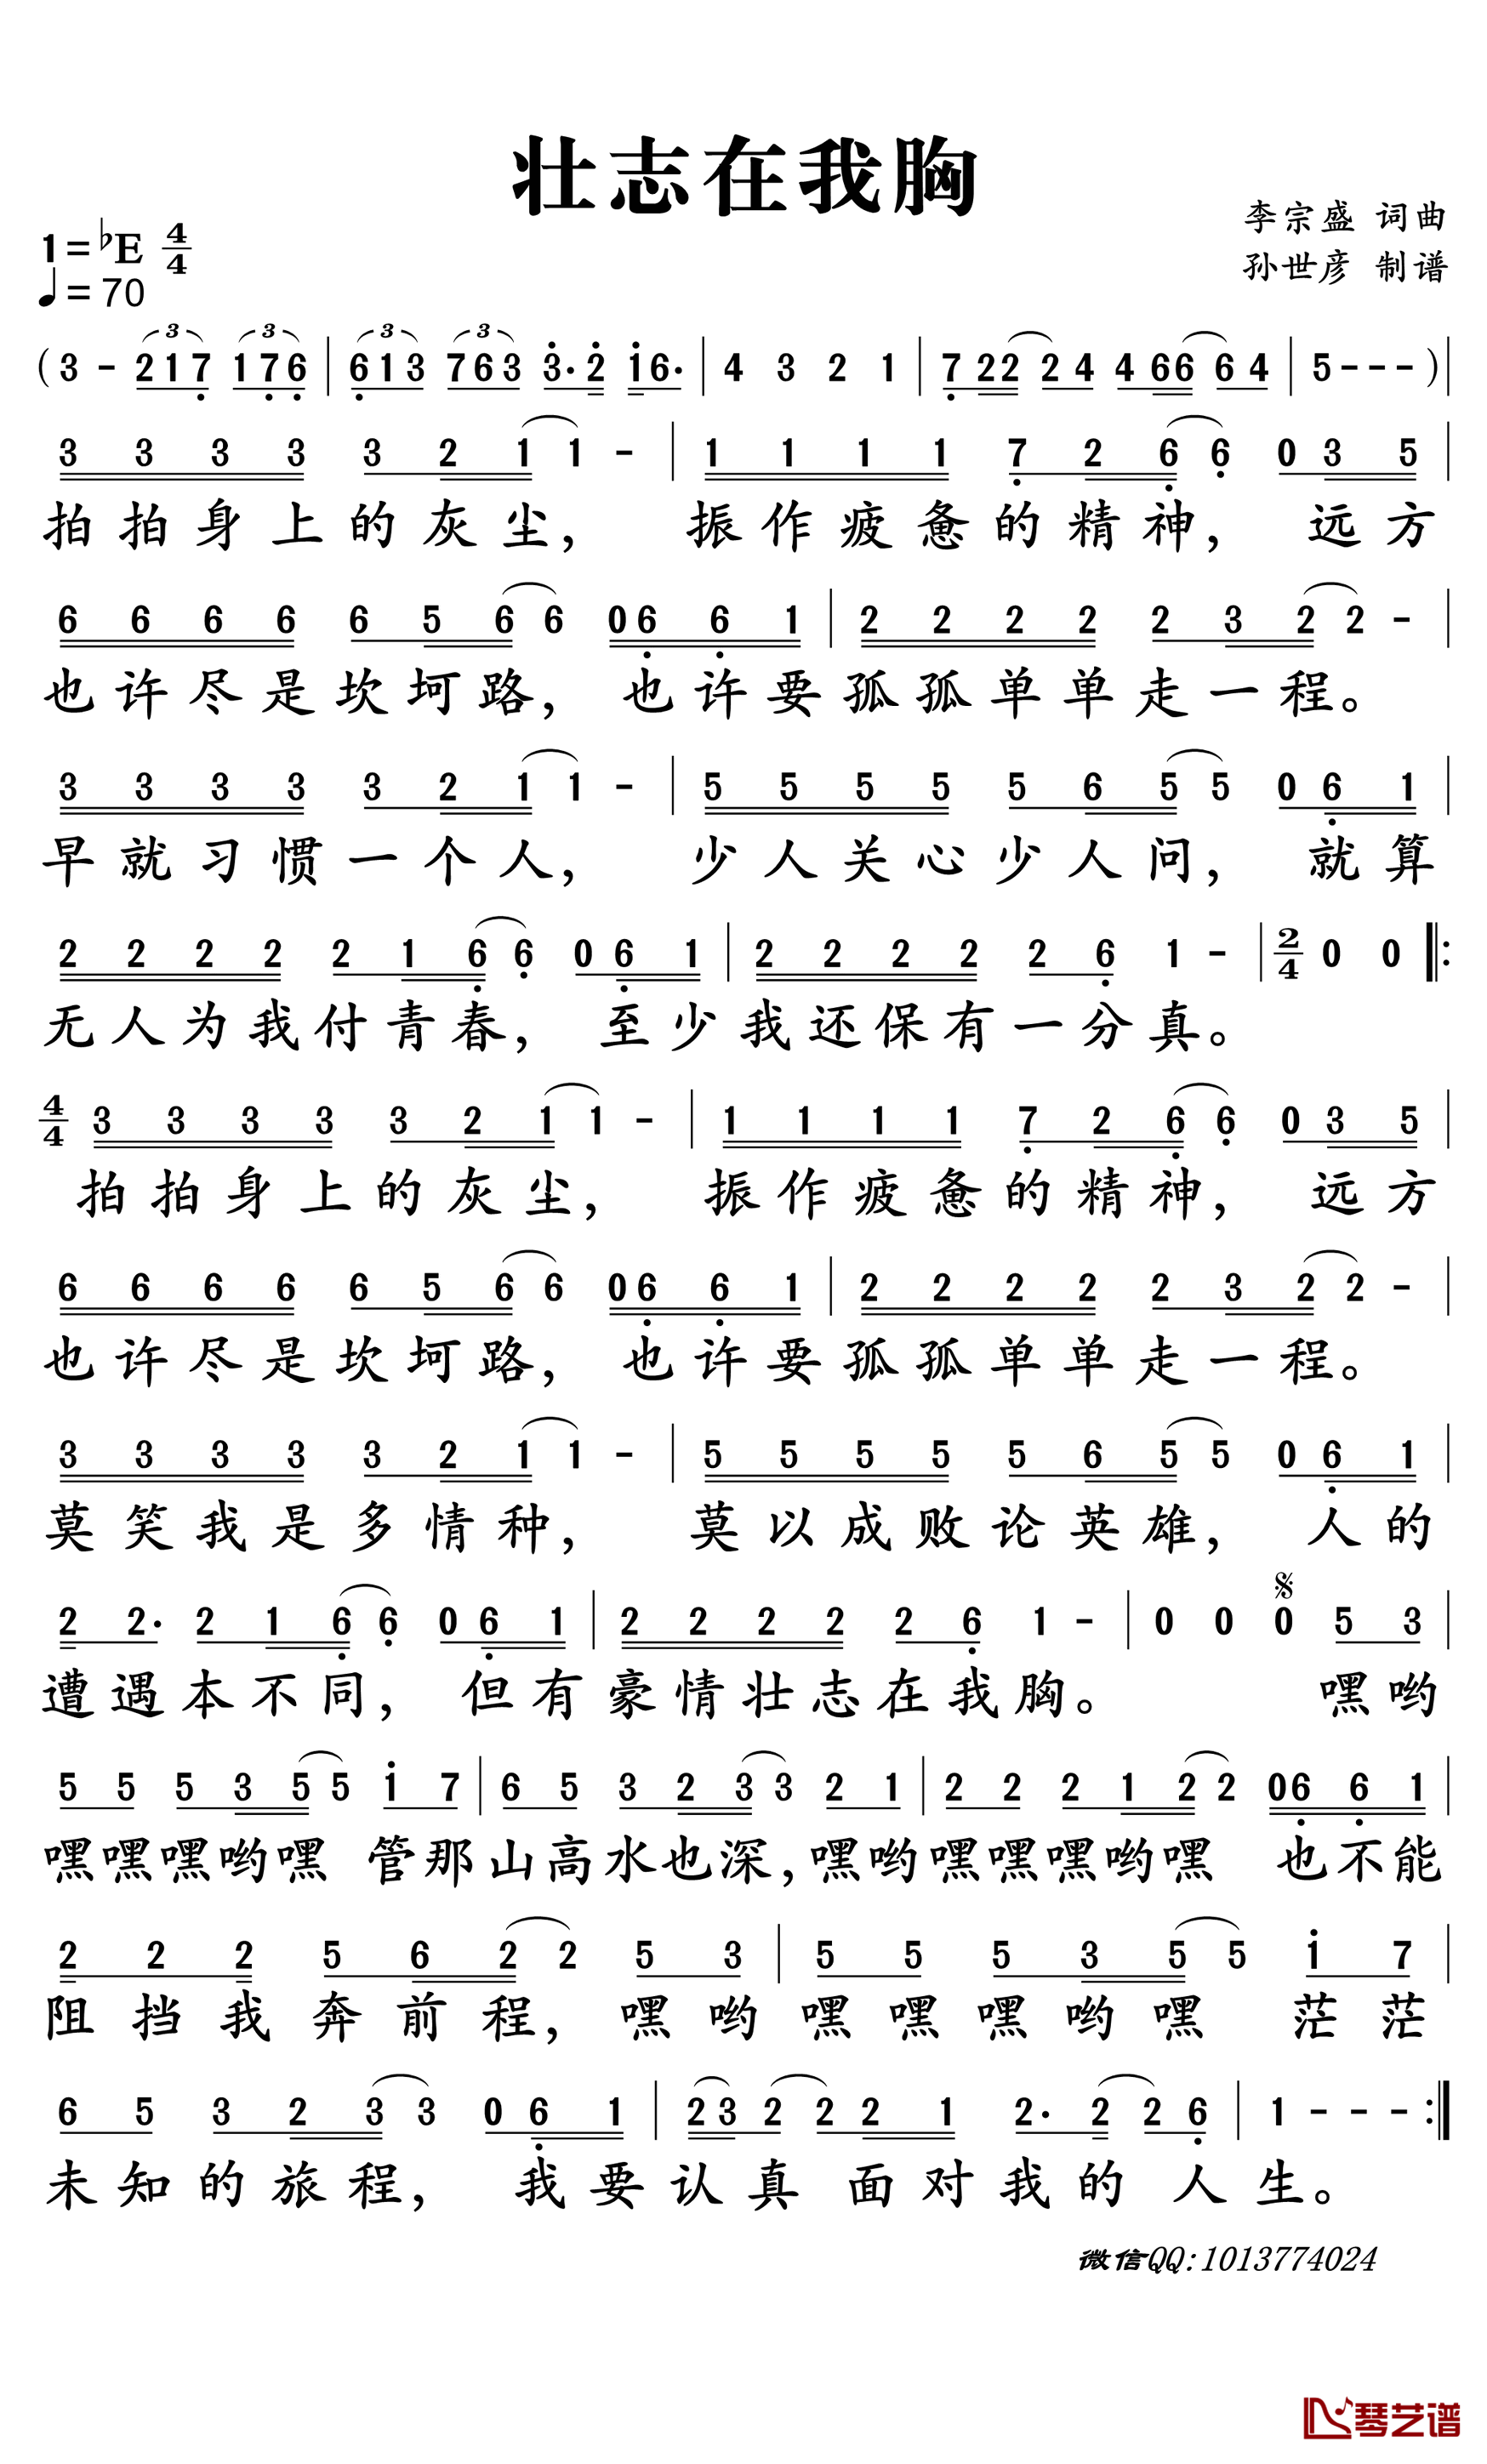 壮志在我胸
李宗盛 词曲
孙世彦 制谱
1=♭E 4/4
♩=70
( 3 - 2 1 7 1 7 6 | 6 1 3 7 6 3 3· 2 1 6· | 4 3 2 1 | 7 2 2 2 4 4 6 6 6 4 | 5 - - - ) |
3 3 3 3 3 2 1 1 - | 1 1 1 1 7 2 6 6 0 3 5 |
拍拍身上的灰尘， 振作疲惫的精神， 远方
6 6 6 6 6 5 6 6 0 6 6 1 | 2 2 2 2 2 3 2 2 - |
也许尽是坎坷路， 也许要孤孤单单走一程。
3 3 3 3 3 2 1 1 - | 5 5 5 5 5 6 5 5 0 6 1 |
早就习惯一个人， 少人关心少人问， 就算
2 2 2 2 2 1 6 6 0 6 1 | 2 2 2 2 2 6 1 - | 2/4 0 0 |:
无人为我付青春， 至少我还保有一分真。
4/4 3 3 3 3 3 2 1 1 - | 1 1 1 1 7 2 6 6 0 3 5 |
拍拍身上的灰尘， 振作疲惫的精神， 远方
6 6 6 6 6 5 6 6 0 6 6 1 | 2 2 2 2 2 3 2 2 - |
也许尽是坎坷路， 也许要孤孤单单走一程。
3 3 3 3 3 2 1 1 - | 5 5 5 5 5 6 5 5 0 6 1 |
莫笑我是多情种， 莫以成败论英雄， 人的
2 2· 2 1 6 6 0 6 1 | 2 2 2 2 2 6 1 - | 0 0 0 5 3 |
遭遇本不同， 但有豪情壮志在我胸。 嘿哟
5 5 5 3 5 5 1 7 | 6 5 3 2 3 3 2 1 | 2 2 2 1 2 2 0 6 6 1 |
嘿嘿嘿哟嘿 管那山高水也深，嘿哟嘿嘿嘿哟嘿 也不能
2 2 2 5 6 2 2 5 3 | 5 5 5 3 5 5 1 7 |
阻挡我奔前程， 嘿哟嘿嘿嘿哟嘿 茫茫
6 5 3 2 3 3 0 6 1 | 2 3 2 2 2 1 2· 2 2 6 | 1 - - - :|
未知的旅程， 我要认真面对我的人生。
微信QQ:1013774024
琴艺谱